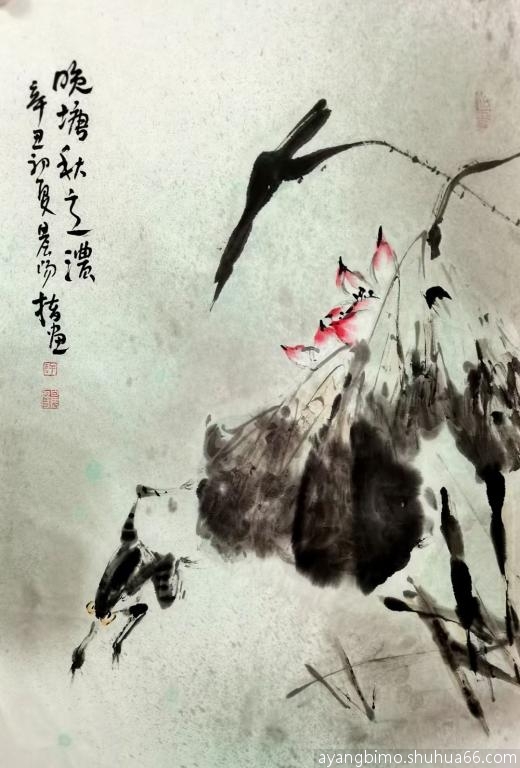 晚塘秋意濃
辛丑初夏晨阳指画
ayangbimo.shuhua66.com